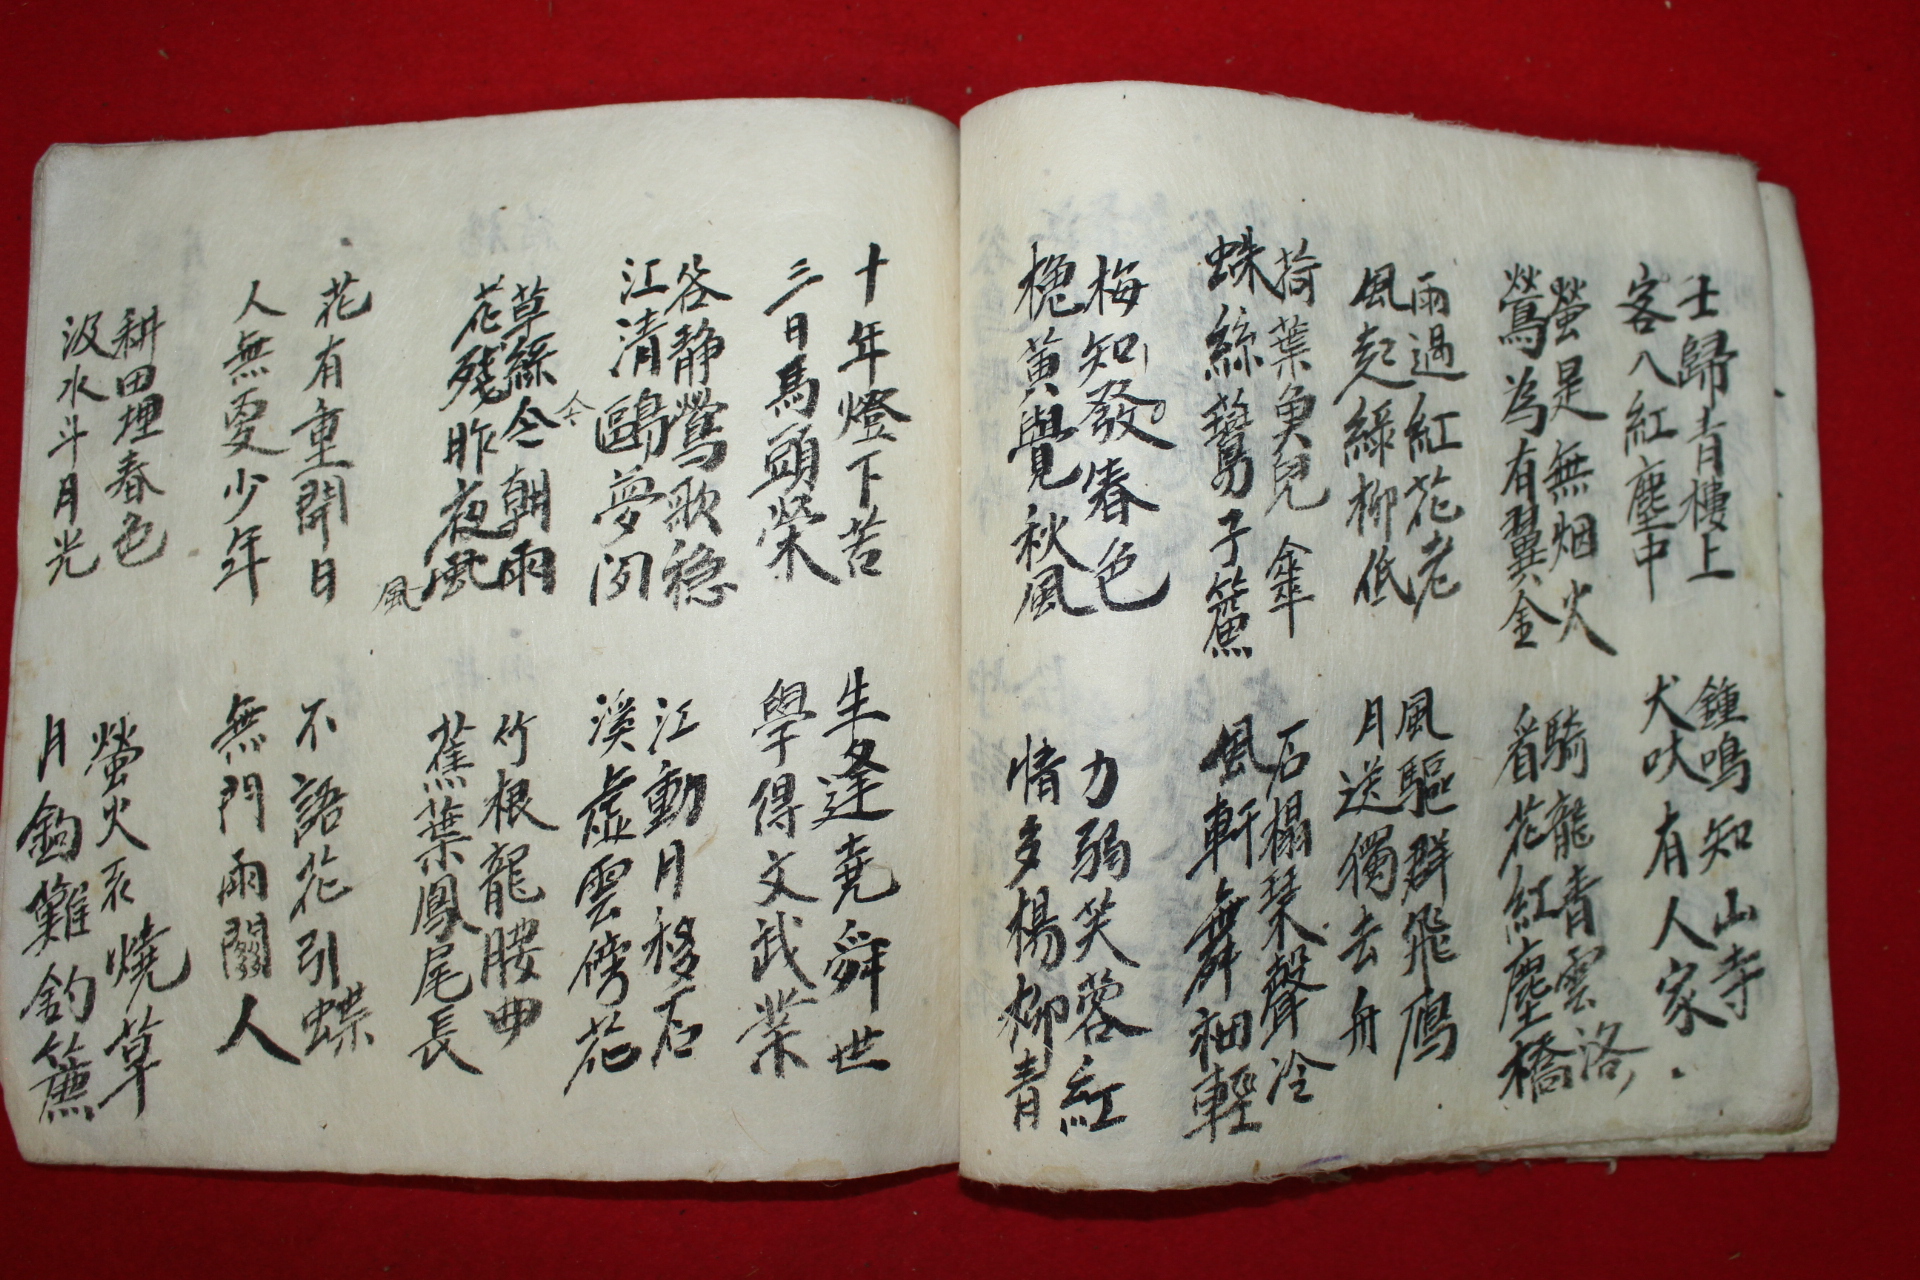 士歸青樓上
客入紅塵中
螢是無烟火
鶯為有翼金
雨過紅花老
風起綠柳低
荷葉魚兒傘
蛛絲燕子簾
梅知發春色
槐黃覺秋風
鍾鳴知山寺
犬吠有人家
騎龍青雲洛
看花紅塵橋
風驅群飛鴈
月送獨去舟
石榻琴聲冷
風軒舞袖輕
力弱芙蓉紅
情多楊柳青
十年燈下苦
三日馬頭榮
谷靜鶯歌穩
江清鷗夢閑
草綠今朝雨
今
花殘昨夜風
風
花有重開日
人無更少年
耕田埋春色
汲水斗月光
生逢堯舜世
學得文武業
江動月移石
溪虛雲傍花
竹根龍腰曲
蕉葉鳳尾長
不語花引蝶
無門雨關人
螢火不燒草
月鉤難釣簾